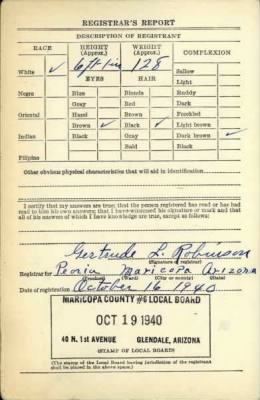 REGISTRAR'S REPORT
DESCRIPTION OF REGISTRANT
RACE HEIGHT (Approx.) WEIGHT (Approx.) COMPLEXION
White ✓ 6 ft 128 Sallow
EYES HAIR Light
Negro Blue Blonde Ruddy
Gray Red Dark
Oriental Hazel Brown Freckled
Brown ✓ Black ✓ Light brown
Indian Black Gray Dark brown ✓
Bald Black
Filipino
Other obvious physical characteristics that will aid in identification
I certify that my answers are true; that the person registered has read or has had
read to him his own answers; that I have witnessed his signature or mark and that
all of his answers of which I have knowledge are true, except as follows:
Gertrude L. Robinson
(Signature of registrar)
Registrar for Peoria Maricopa Arizona
(Precinct) (Ward) (City or county) (State)
Date of registration October 16 1940
MARICOPA COUNTY #6 LOCAL BOARD
OCT 19 1940
40 N. 1st AVENUE GLENDALE, ARIZONA
(STAMP OF LOCAL BOARD)
(The stamp of the Local Board having jurisdiction of the registrant
shall be placed in the above space.)